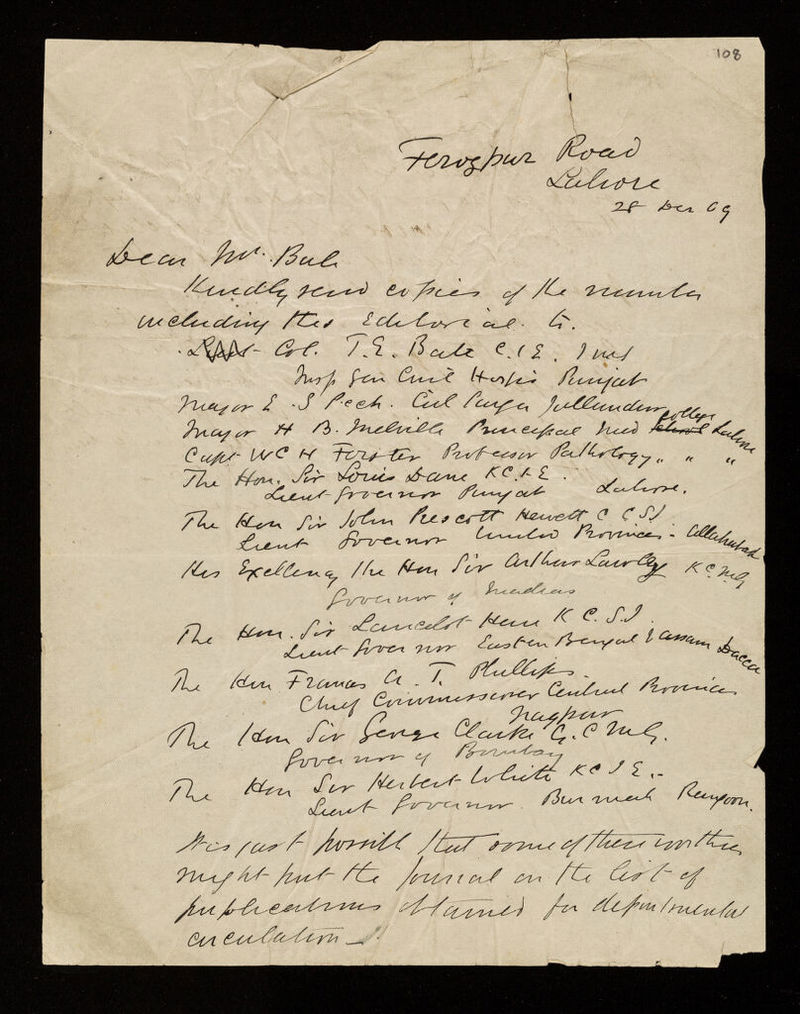 108
Ferozpur Road
Lahore
28 Dec 09
Dear Mr.
Kindly send copies of the number
including this Editorial to.
Col. T.E. Bate C.I.E. I M S
Insp Gen Civil Hospis Punjab
Major E. S Peck. Civil Surgn Jullundur
Major H B. Melville Principal Med School College Lahore
Capt W C H Forster Professor Pathology " " "
The Hon. Sir Louis Dane K C.I.E.
Lieut Governor Punjab Lahore.
The Hon Sir John Prescott Hewett C C S I
Lieut Governor United Provinces - Allahabad
His Excellency the Hon Sir Arthur Lawley K C. M G
Governor of Madras
The Hon. Sir Lancelot Hare K C. S. I
Lieut Governor Eastern Bengal & Assam Dacca
The Hon Francis A. T. Phillips.
Chief Commissioner Central Provinces
Nagpur
The Hon Sir George Clarke G. C M G.
Governor of Bombay
The Hon Sir Herbert White K C I E.-
Lieut Governor Burmah Rangoon.
It is just possible that some of these worthies
might put the journal on the list of
publications obtained for departmental
circulation -